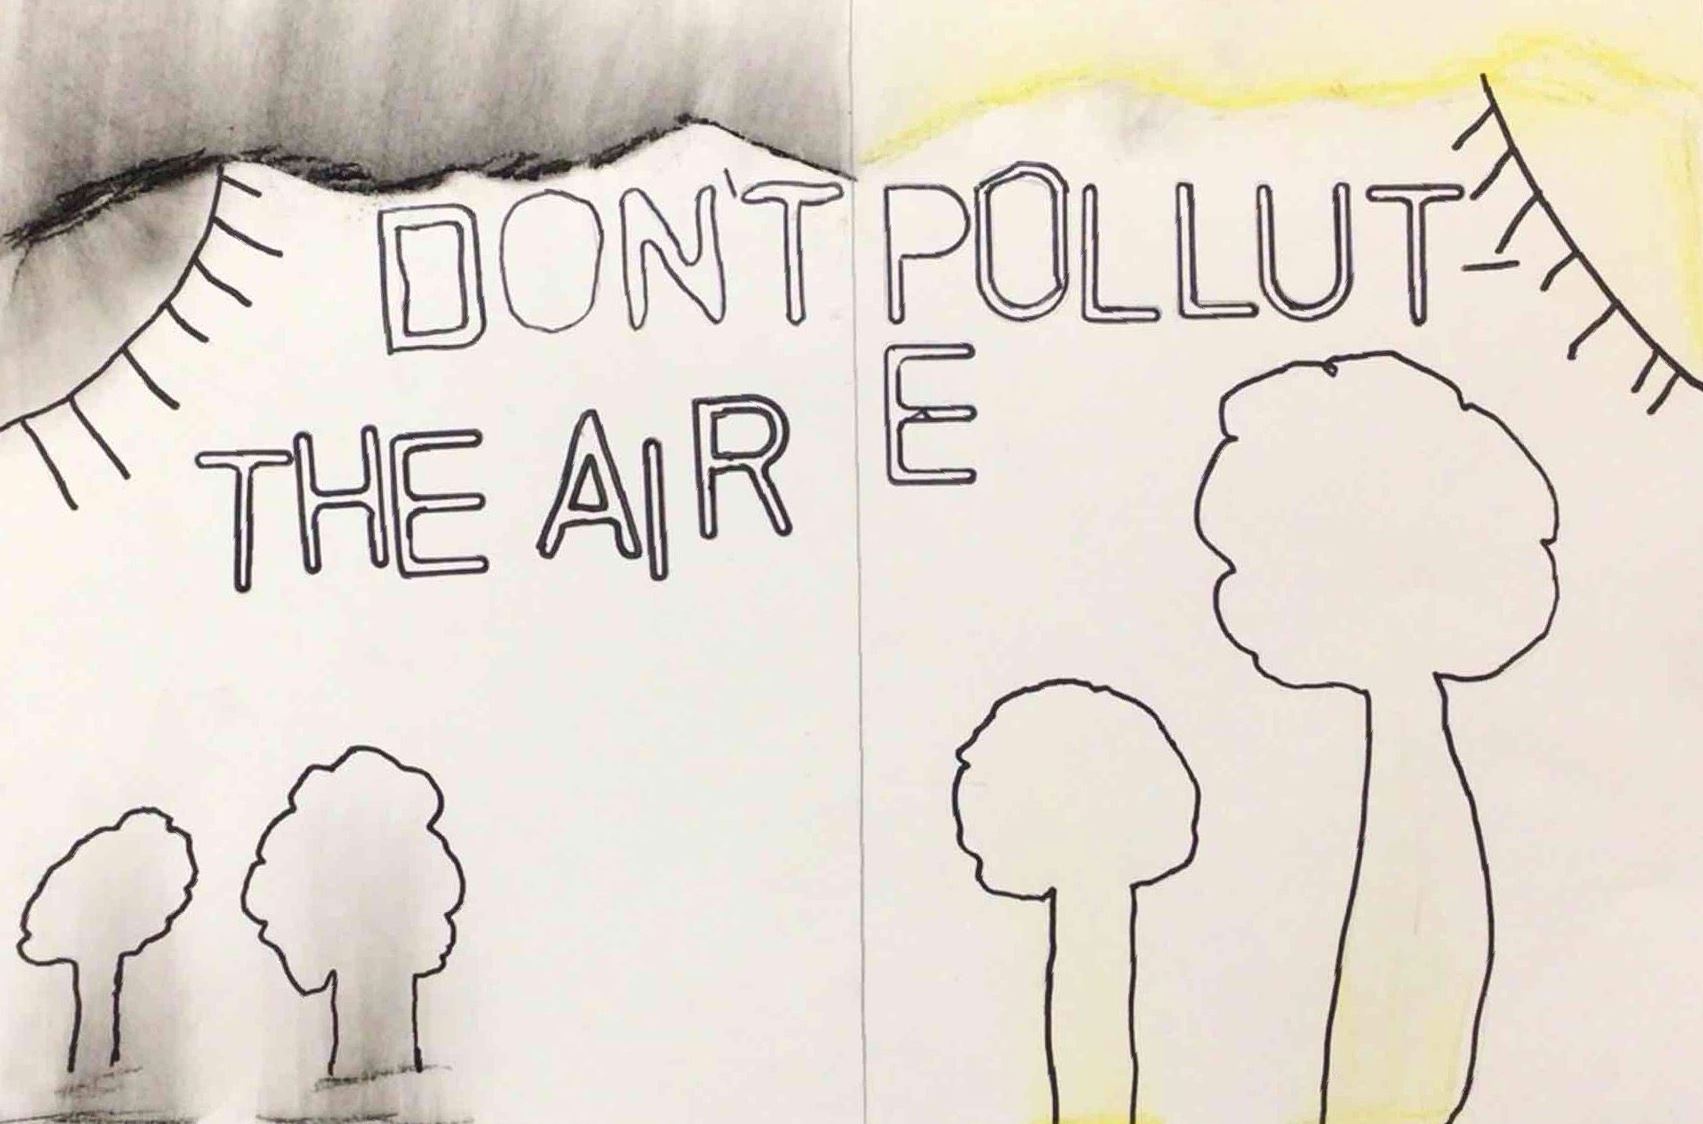 DON'T POLLUT-
E
THE AIR